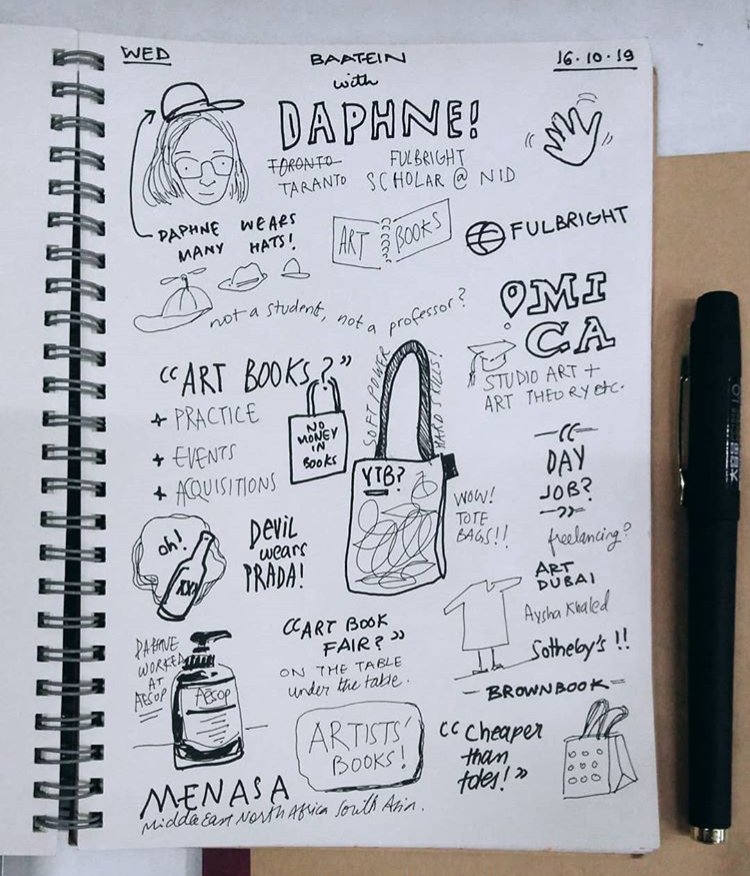 WED
BAATEIN
16.10.19
with
DAPHNE!
TORONTO
TARANTO
FULBRIGHT
SCHOLAR @ NID
DAPHNE WEARS
MANY HATS!
ART BOOKS
FULBRIGHT
not a student, not a professor?
MI
CA
STUDIO ART +
ART THEORY etc.
"ART BOOKS?"
+ PRACTICE
+ EVENTS
+ ACQUISITIONS
NO
MONEY
IN
BOOKS
SOFT POWER
HARD SKILLS!
YTB?
WOW!
TOTE
BAGS!!
DAY
JOB?
freelancing?
oh!
XXX
DEVIL
wears
PRADA!
ART
DUBAI
Aysha Khaled
Sotheby's !!
BROWNBOOK
DAPHNE
WORKED
AT
AESOP
AESOP
"ART BOOK
FAIR?"
ON THE TABLE
under the table.
ARTISTS'
BOOKS!
"Cheaper
than
totes!"
MENASA
Midda East North Africa South Asia.